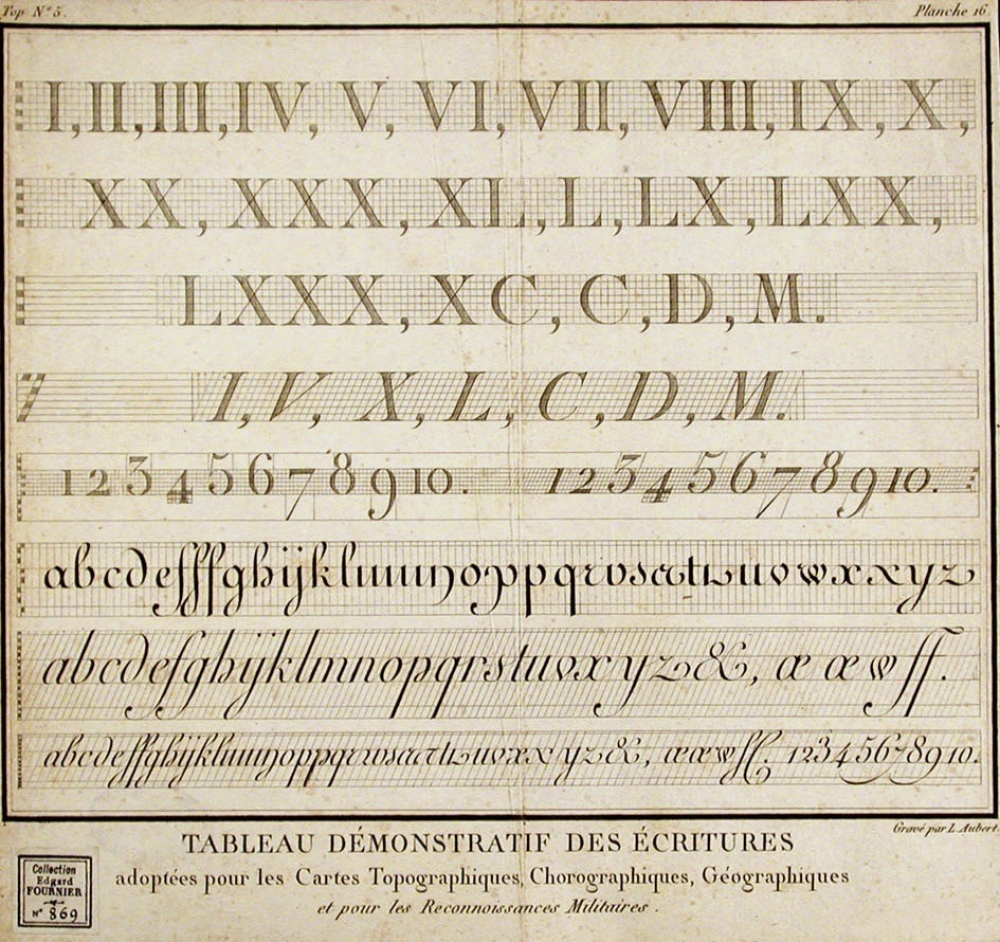 Top N.º 5.
Planche 16.
I, II, III, IV, V, VI, VII, VIII, IX, X,
XX, XXX, XL, L, LX, LXX,
LXXX, XC, C, D, M.
I, V, X, L, C, D, M.
1 2 3 4 5 6 7 8 9 10. 1 2 3 4 5 6 7 8 9 10.
abcdefffghijklmnoppqrvsattuvwxxyz
abcdefghijklmnopqrstuvxyz&, æ œ w ff.
1 2 3 4 5 6 7 8 9 10.
Gravé par L. Aubert.
TABLEAU DÉMONSTRATIF DES ÉCRITURES
adoptées pour les Cartes Topographiques, Chorographiques, Géographiques
et pour les Reconnoissances Militaires.
Collection
Edgard
FOURNIER
N° 869